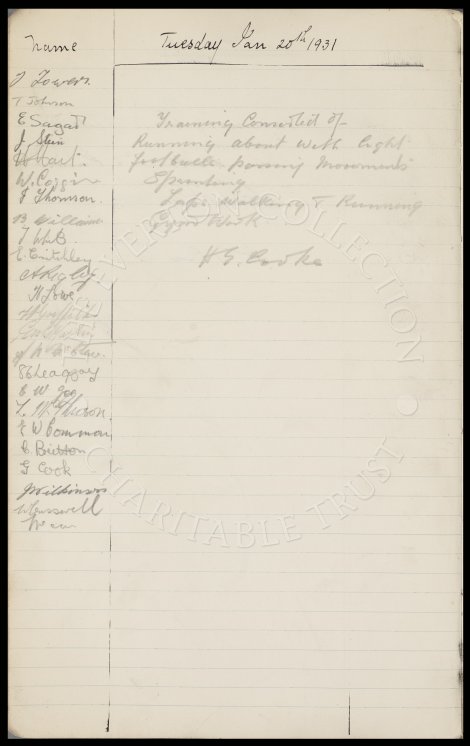 Name
Tuesday Jan 20th 1931
J Towers.
T Johnson
E Sagar
J Stein
H Hart.
W. Coggin
J Thomson.
B Williams
T White.
E. Critchley
A Rigby
H Lowe
G Martin
S Bleaggey
E W Gee
L. McPherson
E W Common
C Britton
G Cook
J Wilkinson
W Cresswell
Training Consisted of
Running about with light
footballs passing movements
Sprinting
Laps Walking & Running
Gym Work
H E. Cooke
EVERTON COLLECTION
CHARITABLE TRUST